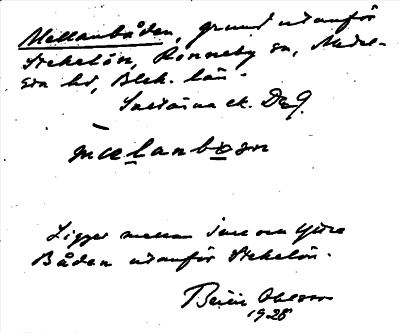 Mellanbåden, grund utanför
Stekelön, Ronneby sn, Medel-
sta hd, Blek. län.
ek. D. 9.
mɛlanbɔ̤ən
Ligger mellan Inre och Yttre
Båden utanför Stekelön.
Ohlsson
1928